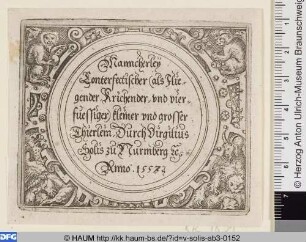 Manncherley
Conterfettischer als Flie-
gender Krichender, vnd vier
fuessiger, kleiner vnd grosser
Thierlein. Durch Virgilius
Solis zu Nurmberg ꝛc.
Anno 1557.
© Herzog Anton Ulrich-Museum Braunschweig
DFG
© HAUM http://kk.haum-bs.de/?id=v-solis-ab3-0152